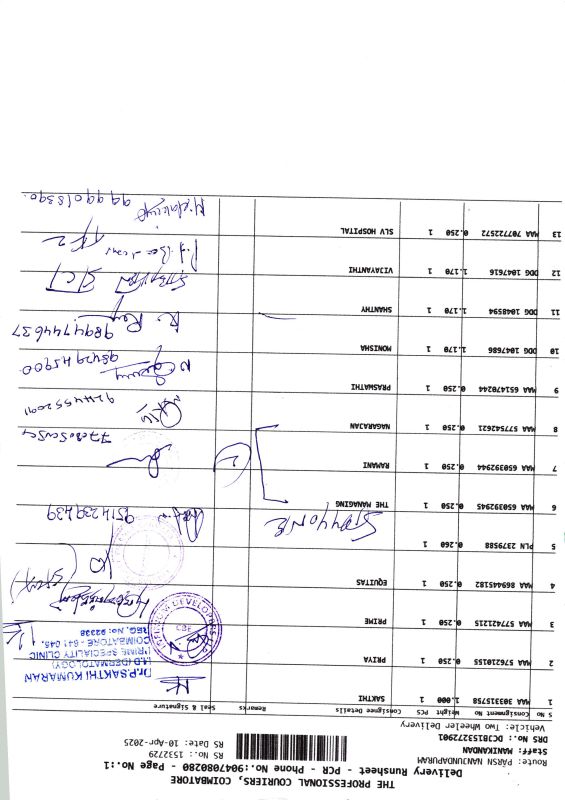 THE PROFESSIONAL COURIERS, COIMBATORE
Delivery Runsheet - PCR - Phone No.:9047080280 - Page No.:1
Route: PARSN NANJUNDAPURAM
Staff: MANIKANDAN
DRS No.: DCB1532729O1
Vehicle: Two Wheeler Delivery
RS No.: 1532729
RS Date: 10-Apr-2025
S No Consignment No Weight PCS Consignee Details Remarks Seal & Signature
1 MAA 303315758 1.000 1 SAKTHI
Dr.P.SAKTHI KUMARAN
M.D (DERMATOLOGY)
PRIME SPECIALITY CLINIC
COIMBATORE - 641 045.
REG. No: 92338
2 MAA 576210155 0.250 1 PRIYA
3 MAA 577421215 0.250 1 PRIME
DEVELOPERS
CBE
4 MAA 869445182 0.250 1 EQUITAS
5 PLN 2379588 0.260 1
6 MAA 650392945 0.250 1 THE MANAGING
9514239439
7 MAA 650392944 0.250 1 RAMANI
2
8 MAA 577542621 0.250 1 NAGARAJAN
9244552091
9 MAA 651470244 0.250 1 PRASATHI
9842945900
10 DDG 1047686 1.170 1 MONISHA
9894744637
11 DDG 1048594 1.170 1 SHANTHY
12 DDG 1047616 1.170 1 VIJAYANTHI
13 MAA 707722572 0.250 1 SLV HOSPITAL
9999018390.